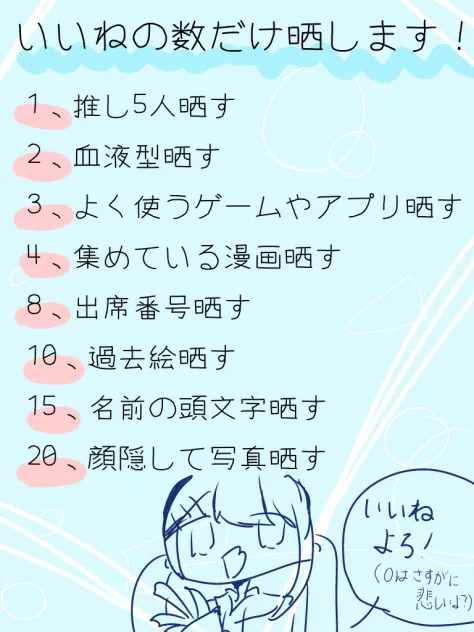 いいねの数だけ晒します！
1、推し5人晒す
2、血液型晒す
3、よく使うゲームやアプリ晒す
4、集めている漫画晒す
8、出席番号晒す
10、過去絵晒す
15、名前の頭文字晒す
20、顔隠して写真晒す
いいね
よろ！
(0はさすがに
悲しいよ?)